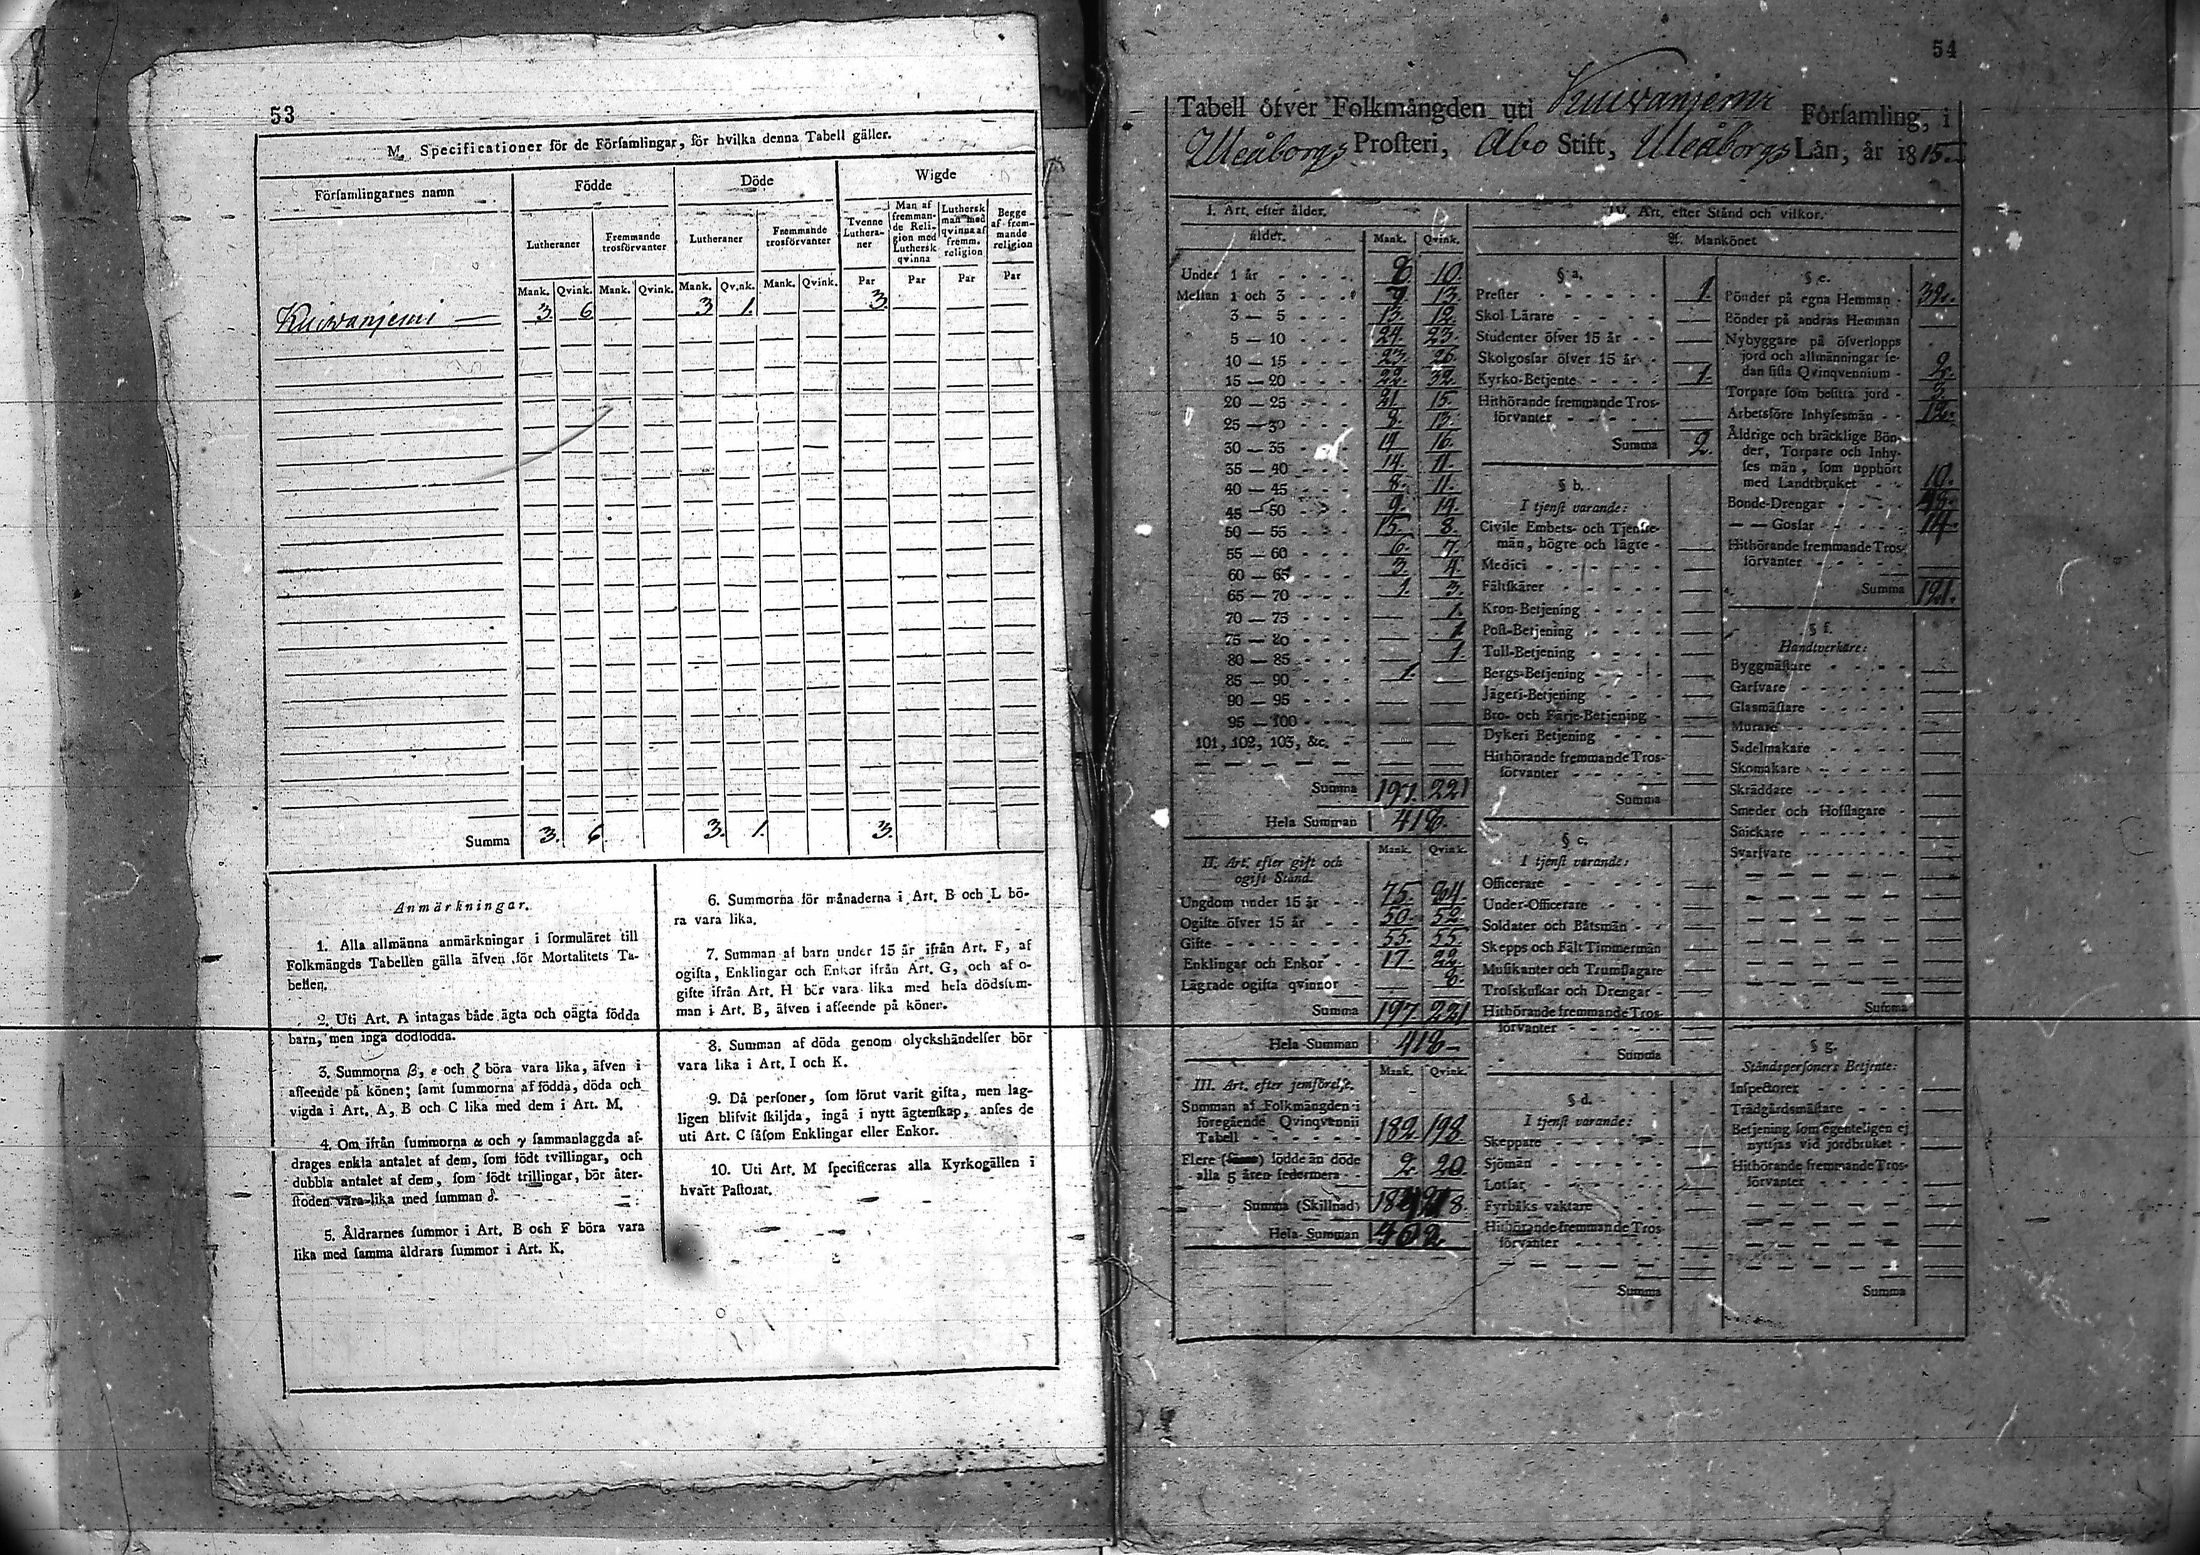 53
M. Specificationer för de Församlingar, för hvilka denna Tabell gäller.
Församlingarnes namn
Födde
Döde
Wigde
Lutheraner
Fremmande trosförvanter
Lutheraner
Fremmande trosförvanter
Tvenne Lutheraner
Man af fremmande Religion med Luthersk qvinna
Luthersk man med qvinna af fremm. religion
Begge af fremmande religion
Mank. Qvink. Mank. Qvink. Mank. Qvink. Mank. Qvink. Par Par Par Par
Kuivaniemi 3. 6 3 1. 3.
Summa 3. 6 3. 1. 3.
Anmärkningar.
1. Alla allmänna anmärkningar i formuläret till
Folkmängds Tabellen gälla äfven för Mortalitets Ta-
bellen.
2. Uti Art. A intagas både ägta och oägta födda
barn, men inga dödfödda.
3. Summorna β, ε och ζ böra vara lika, äfven i
afseende på könen; samt summorna af födda, döda och
vigda i Art. A, B och C lika med dem i Art. M.
4. Om ifrån summorna α och γ sammanlaggda af-
drages enkla antalet af dem, som födt tvillingar, och
dubbla antalet af dem, som födt trillingar, bör åter-
stoden vara lika med summan δ.
5. Åldrarnes summor i Art. B och F böra vara
lika med samma åldrars summor i Art. K.
6. Summorna för månaderna i Art. B och L bö-
ra vara lika.
7. Summan af barn under 15 år ifrån Art. F, af
ogifta, Enklingar och Enkor ifrån Art. G, och af o-
gifte ifrån Art. H bör vara lika med hela dödssum-
man i Art. B, äfven i afseende på könen.
8. Summan af döda genom olyckshändelser bör
vara lika i Art. I och K.
9. Då personer, som förut varit gifta, men lag-
ligen blifvit skiljda, ingå i nytt ägtenskap, anses de
uti Art. C såsom Enklingar eller Enkor.
10. Uti Art. M specificeras alla Kyrkogällen i
hvart Pastorat.
54
Tabell öfver Folkmängden uti Kuivaniemi Församling, i
Uleåborgs Prosteri, Åbo Stift, Uleåborgs Län, år 1815.
I. Art. efter ålder.
ålder. Mank. Qvink.
Under 1 år 8 10.
Mellan 1 och 3 9. 13.
3 — 5 13. 12.
5 — 10 24. 23.
10 — 15 23. 26.
15 — 20 22. 32.
20 — 25 21. 15.
25 — 30 8. 13.
30 — 35 16.
35 — 40 14. 11.
40 — 45 8. 11.
45 — 50 9. 14.
50 — 55 15. 8.
55 — 60 6. 7.
60 — 65 3. 4.
65 — 70 1. 3.
70 — 75 — 1.
75 — 80 — 1.
80 — 85 — 1.
85 — 90 1. —
90 — 95
95 — 100
101, 102, 103, &c.
Summa 197. 221
Hela Summan 418.
II. Art. efter gift och
ogift Stånd.
Mank. Qvink.
Ungdom under 15 år 75. 84.
Ogifte öfver 15 år 50. 52.
Gifte 55. 55.
Enklingar och Enkor 17 22.
Lägrade ogifta qvinnor — 8.
Summa 197 221
Hela Summan 418
III. Art. efter jemförelse.
Mank. Qvink.
Summan af Folkmängden i
föregående Qvinqvennii
Tabell 182 198.
Flere födde än döde
alla 5 åren sedermera 2. 20.
Summa (Skillnad)
Hela Summan 402.
IV. Art. efter Stånd och vilkor.
A. Mankönet
§ a.
Prester 1.
Skol Lärare
Studenter öfver 15 år
Skolgossar öfver 15 år
Kyrko-Betjente 1.
Hithörande fremmande Tros-
förvanter
Summa 2.
§ b.
I tjenst varande:
Civile Embets- och Tjenste-
män, högre och lägre
Medici
Fältskärer
Kron-Betjening
Post-Betjening
Tull-Betjening
Bergs-Betjening
Jägeri-Betjening
Bro- och Färje-Betjening
Dykeri Betjening
Hithörande fremmande Tros-
förvanter
Summa
§ c.
I tjenst varande:
Officerare
Under-Officerare
Soldater och Båtsmän
Skepps och Fält Timmermän
Musikanter och Trumslagare
Trosskuskar och Drengar
Hithörande fremmande Tros-
förvanter
Summa
§ d.
I tjenst varande:
Skeppare
Sjömän
Lotsar
Fyrbåks vaktare
Hithörande fremmande Tros-
förvanter
Summa
§ e.
Bönder på egna Hemman 32.
Bönder på andras Hemman
Nybyggare på öfverlopps
jord och allmänningar se-
dan sista Qvinqvennium 2.
Torpare som besitta jord 3.
Arbetsföre Inhysesmän 12.
Åldrige och bräcklige Bön-
der, Torpare och Inhy-
ses män, som upphört
med Landtbruket 10.
Bonde-Drengar
— — Gossar 14.
Hithörande fremmande Tros-
förvanter
Summa 121.
§ f.
Handtverkare:
Byggmästare
Garfvare
Glasmästare
Murare
Sadelmakare
Skomakare
Skräddare
Smeder och Hofslagare
Snickare
Svarfvare
Summa
§ g.
Ståndspersoners Betjente:
Inspectorer
Trädgårdsmästare
Betjening som egenteligen ej
nyttjas vid jordbruket
Hithörande fremmande Tros-
förvanter
Summa